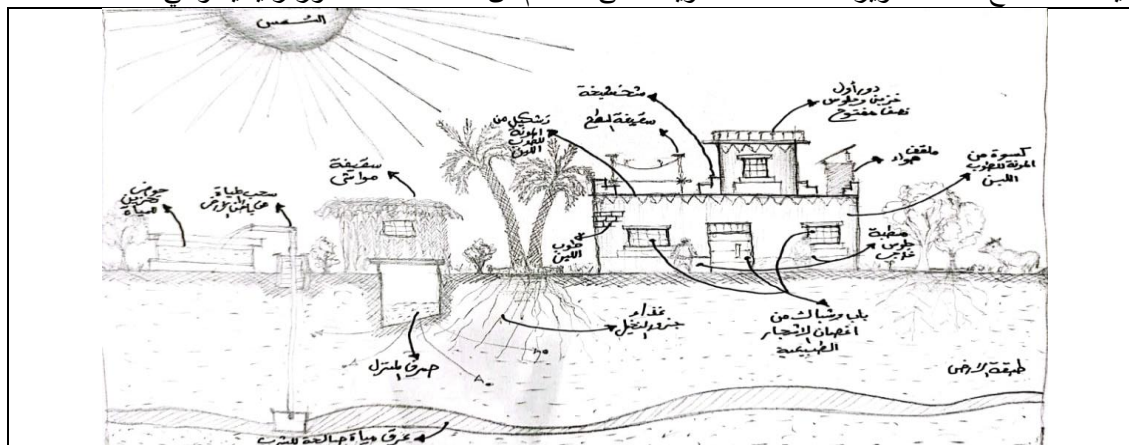 الشمس
دور أول
تخزين وجلوس
نصف مفتوح
شخشيخة
سقيفة السطح
تشكيل من
المونة
للطوب
اللبن
ملقف
هواء
كسوة من
المونة للطوب
اللبن
سقيفة
مواشي
سحب المياة
من باطن الأرض
حوض
تخزين
المياة
طوب
اللبن
مصطبة
جلوس
خارجي
باب وشباك من
اغصان الاشجار
الطبيعية
غذاء
جذور النخيل
صرف المنزل
طبقة الارض
عرق مياة صالحة للشرب